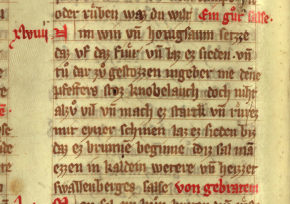 oder růben waz du wilt. Ein gůt salse.
xlviiij. Nim win vñ honigsaum setze
daz vf daz fiwer vñ laz ez sieden. vñ
tů dar zů gestozzen ingeber me denne
pfeffers stoz knobelauch doch niht
alzů vil vñ mach ez starck vñ růrez
mit eyner schinen laz ez sieden biz
daz ez brunne beginne ditz sal man
ezzen in kaldem wetere vñ heizzet
swallenberges salse. von gebratem